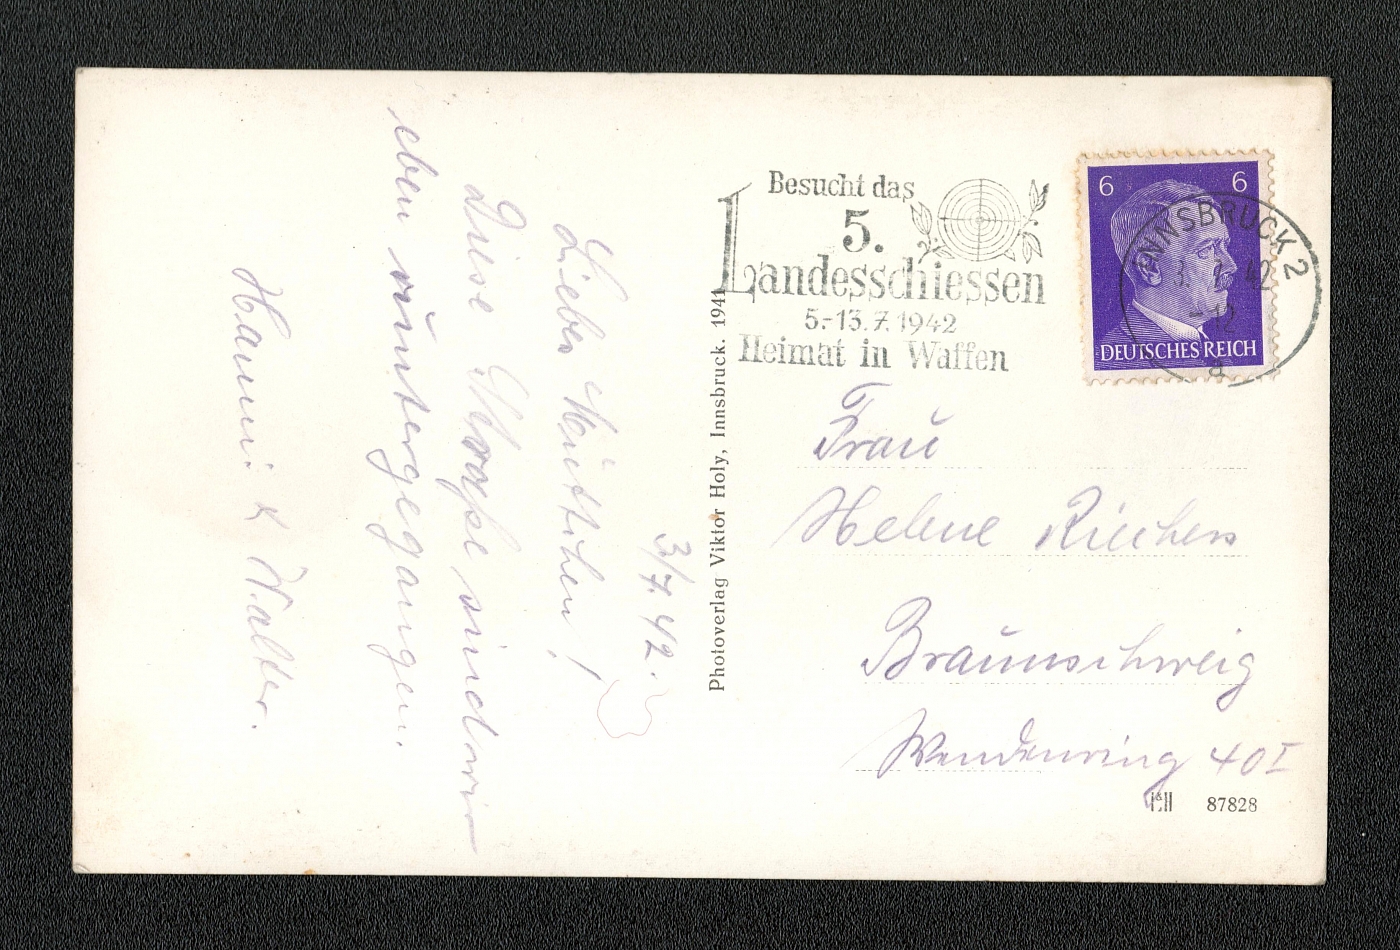 3/7.42.
Liebes Muttchen!
Diese Straße sind wir
eben runtergegangen.
Hanni & Walter.
Photoverlag Viktor Holy, Innsbruck. 1941
Besucht das
5.
Landesschiessen
5.-13.7.1942
Heimat in Waffen
6 6
DEUTSCHES REICH
INNSBRUCK 2
3. 7. 42
-12
a
Frau
Helene Riechers
Braunschweig
Wendenring 40 I
87828